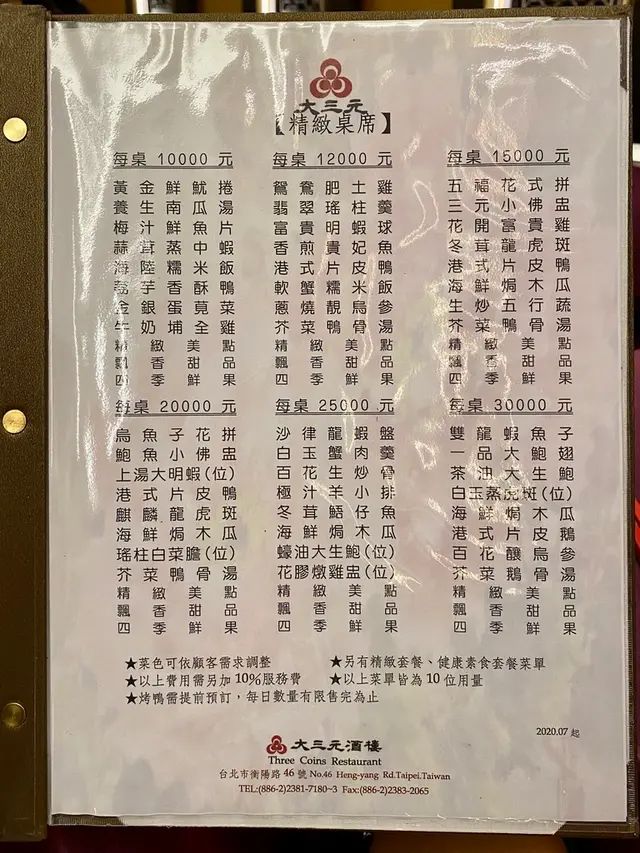 大三元
【精緻桌席】
每桌 10000 元
黃金鮮魷捲
養生南瓜湯
梅汁鮮魚片
蒜茸蒸中蝦
海陸糯米飯
芋香酥鴨
金銀蛋莧菜
牛奶埔全雞
精緻美點
飄香甜品
四季鮮果
每桌 12000 元
鴛鴦肥土雞
翡翠瑤柱羹
富貴明蝦球
香煎貴妃魚
港式片皮鴨
軟蟹糯米飯
蔥燒靚烏參
芥菜鴨骨湯
精緻美點
飄香甜品
四季鮮果
每桌 15000 元
五福花式拼
三元小佛盅
花開富貴雞
冬茸龍虎斑
港式片皮鴨
海鮮焗木瓜
生炒五行蔬
芥菜鴨骨湯
精緻美點
飄香甜品
四季鮮果
每桌 20000 元
烏魚子花拼
鮑魚小佛盅
上湯大明蝦(位)
港式片皮鴨
麒麟龍虎斑
海鮮焗木瓜
瑤柱白菜膽(位)
芥菜鴨骨湯
精緻美點
飄香甜品
四季鮮果
每桌 25000 元
沙律龍蝦盤
白玉蟹肉羹
百花生炒骨
極汁羊小排
冬茸蒸仔魚
海鮮焗木瓜
蠔油大生鮑(位)
花膠燉雞盅(位)
精緻美點
飄香甜品
四季鮮果
每桌 30000 元
雙龍蝦魚子
一品大魚翅
茶油大生鮑
白玉蒸虎斑(位)
海鮮焗木瓜
港式片皮鵝
百花釀烏參
芥菜鵝骨湯
精緻美點
飄香甜品
四季鮮果
★菜色可依顧客需求調整
★另有精緻套餐、健康素食套餐菜單
★以上費用需另加10%服務費
★以上菜單皆為10位用量
★烤鴨需提前預訂，每日數量有限售完為止
2020.07 起
大三元酒樓
Three Coins Restaurant
台北市衡陽路46號 No.46 Heng-yang Rd.Taipei.Taiwan
TEL:(886-2)2381-7180~3 Fax:(886-2)2383-2065